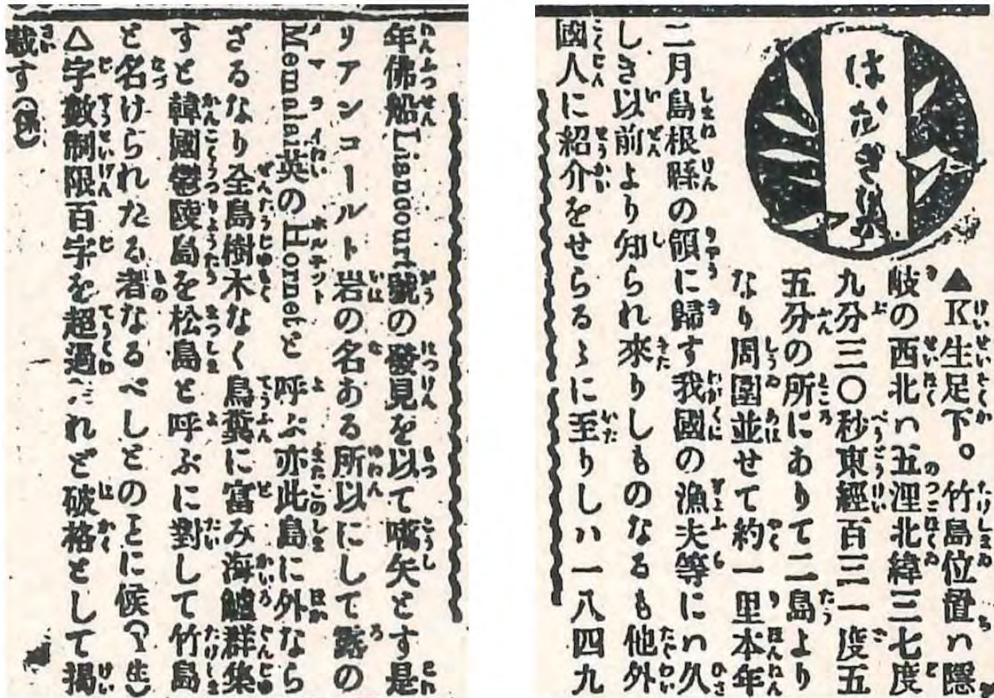 はがき集
▲K生足下。竹島位置ハ隱
岐の西北ハ五浬北緯三七度
九分三〇秒東經百三一度五
五分の所にありて二島より
なり周圍並せて約一里本年
二月島根縣の領に歸す我國の漁夫等にハ久
しき以前より知られ來りしものなるも他外
國人に紹介をせらるゝに至りしハ一八四九
年佛船Liancourt號の發見を以て嚆矢とす是
リアンコールト岩の名ある所以にして露の
Memalai英のHornetと呼ぶ亦此島に外なら
ざるなり全島樹木なく鳥糞に富み海驢群集
すと韓國鬱陵島を松島と呼ぶに對して竹島
と名けられたる者なるべしとのことに候(?生)
△字數制限百字を超過したれど破格として掲
載す(係)